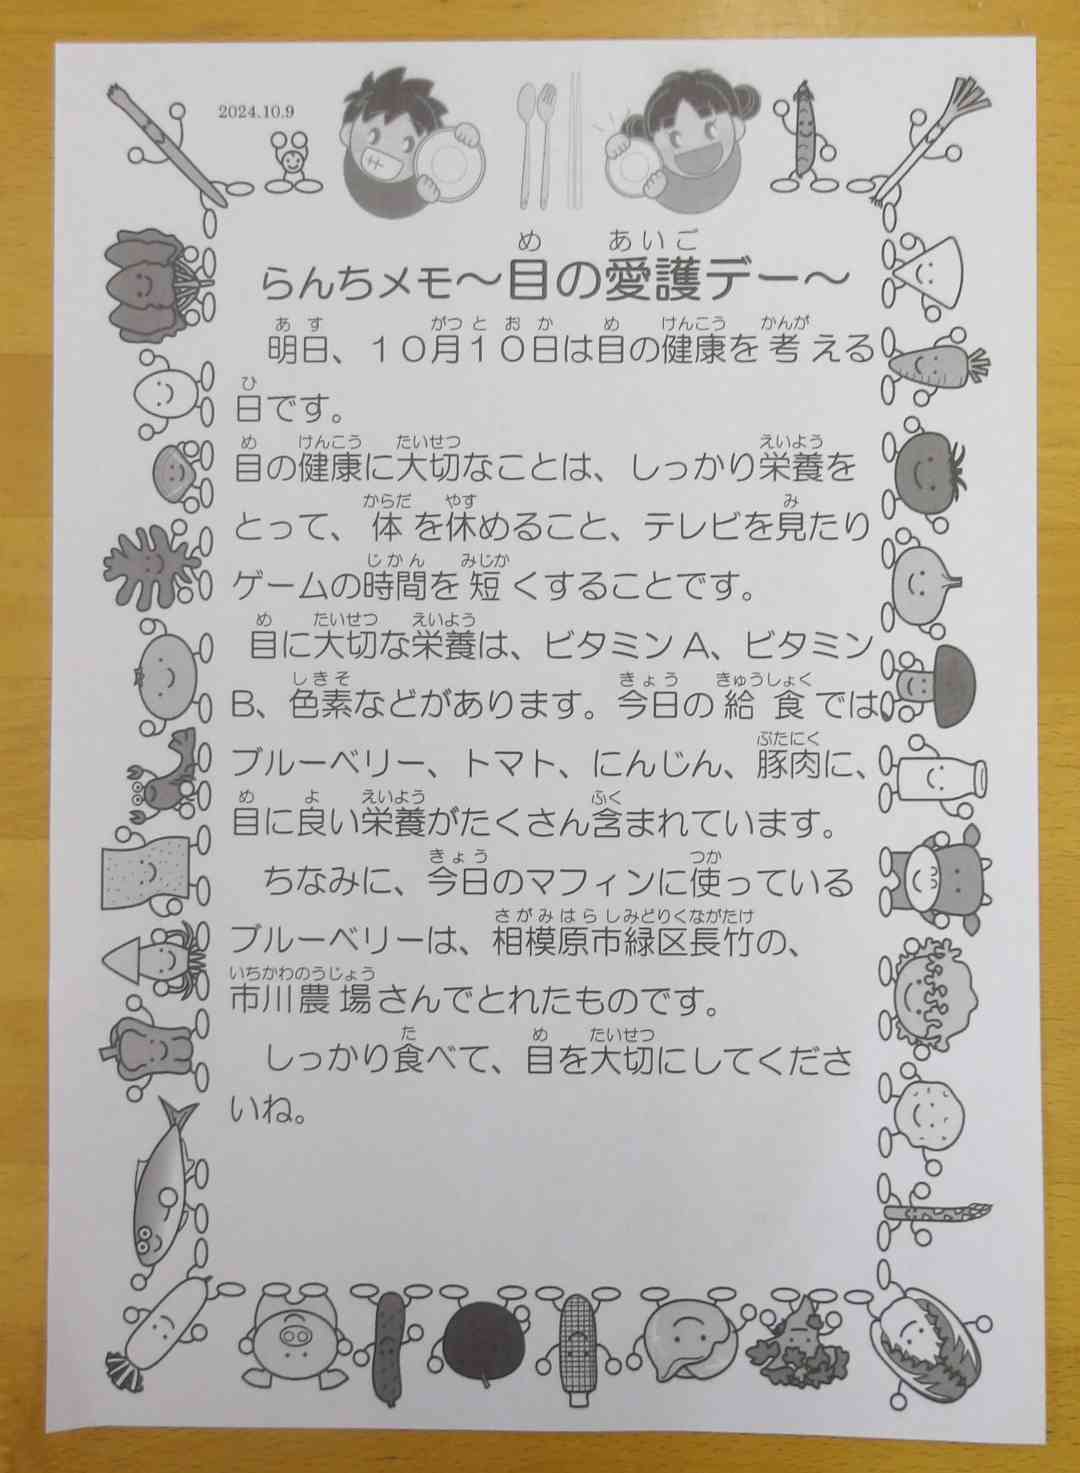 2024.10.9
らんちメモ～目の愛護デー～
明日、１０月１０日は目の健康を考える
日です。
目の健康に大切なことは、しっかり栄養を
とって、体を休めること、テレビを見たり
ゲームの時間を短くすることです。
目に大切な栄養は、ビタミンA、ビタミン
B、色素などがあります。今日の給食では、
ブルーベリー、トマト、にんじん、豚肉に、
目に良い栄養がたくさん含まれています。
ちなみに、今日のマフィンに使っている
ブルーベリーは、相模原市緑区長竹の、
市川農場さんでとれたものです。
しっかり食べて、目を大切にしてくださ
いね。